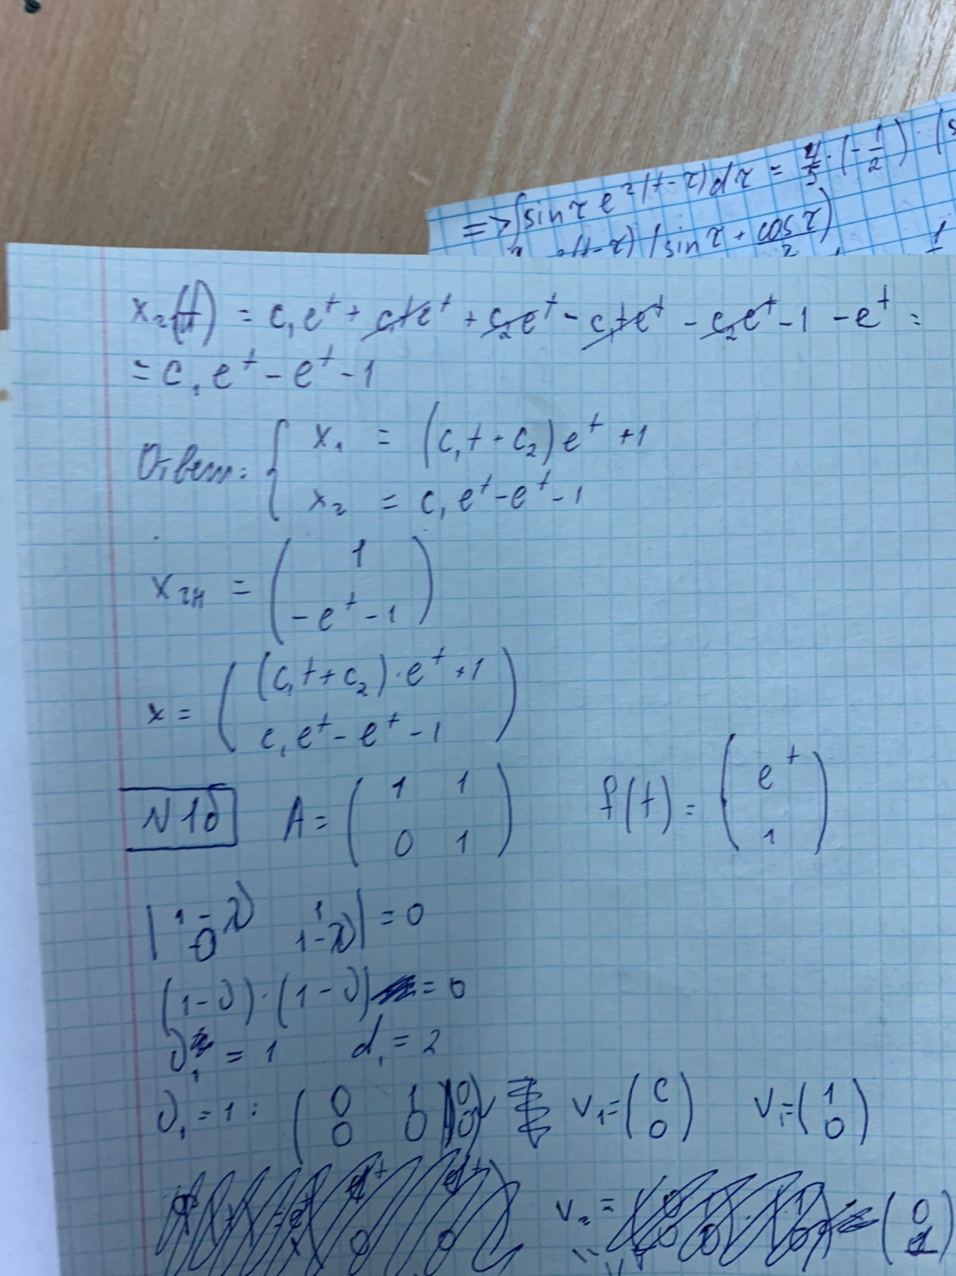 => ∫sin τ e^2(t-τ)dτ = 4/5 · (-1/2) · (s
e^2(t-τ) (sin τ + cos τ/2)
x₂(t) = c₁e^t + c₁te^t + c₂e^t - c₁te^t - c₂e^t - 1 - e^t =
= c₁e^t - e^t - 1
Ответ: { x₁ = (c₁t + c₂)e^t + 1
x₂ = c₁e^t - e^t - 1
x = ( 1
-e^t - 1 )
x = ( (c₁t + c₂)·e^t + 1
c₁e^t - e^t - 1 )
N 1б A = ( 1 1 f(t) = ( e^t
0 1 ) 1 )
| 1-λ 1
0 1-λ | = 0
(1-λ)·(1-λ) = 0
λ₁ = 1 d₁ = 2
λ₁ = 1: ( 0 1 | 0 v₁ = ( c v₁ = ( 1
0 0 | 0 ) 0 ) 0 )
v₂ = = ( 0
1 )